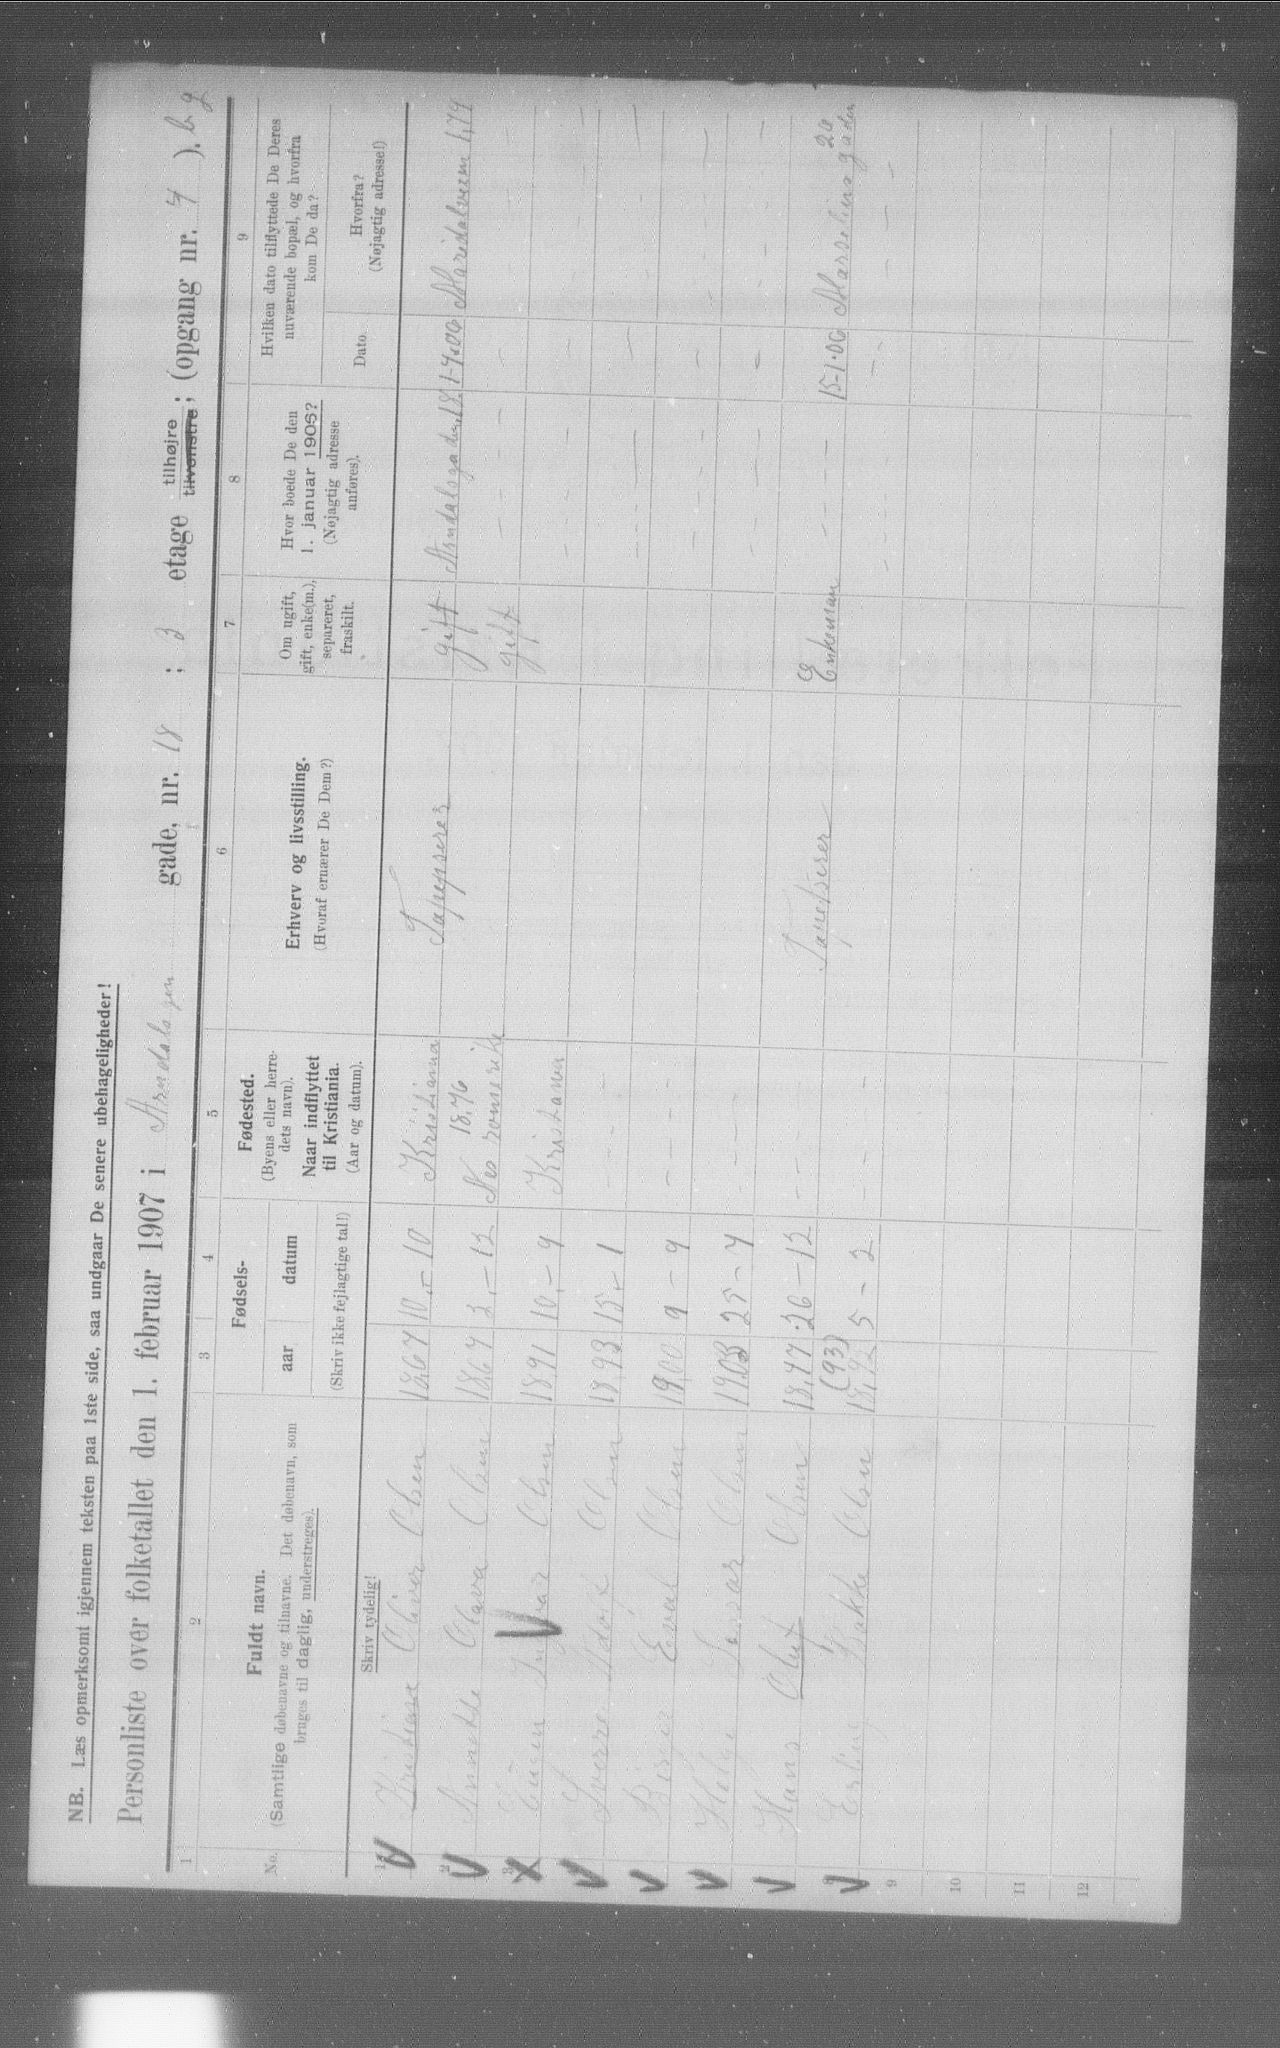 NB. Læs opmerksomt igjennem teksten paa 1ste side, saa undgaar De senere ubehageligheder!
Personliste over folketallet den 1. februar 1907 i Arendalsgen gade, nr. 18 ; 3 etage tilhøjre ; (opgang nr. 4 ). b. g
tilvenstre
1 2 3 4 5 6 7 8 9
No.
Fuldt navn.
(Samtlige døbenavne og tilnavne. Det døbenavn, som
bruges til daglig, understreges).
Fødsels-
aar datum
(Skriv ikke fejlagtige tal!)
Fødested.
(Byens eller herre-
dets navn).
Naar indflyttet
til Kristiania.
(Aar og datum).
Erhverv og livsstilling.
(Hvoraf ernærer De Dem?)
Om ugift,
gift, enke(m.),
separeret,
fraskilt.
Hvor boede De den
1. januar 1906?
(Nøjagtig adresse
anføres).
Hvilken dato tilflyttede De Deres
nuværende bopæl, og hvorfra
kom De da?
Dato
Hvorfra?
(Nøjagtig adresse!)
Skriv tydelig!
1 Kristian Oliver Olsen 1867 10.-10 Kristiania Tapetserer gift Arendalsgaden 18 1-4.06 Maridalsveien
2 Olava Olsen 1867 3.-12 1876 Nes romerike gift — — — —
3 Olsen 1891 10.-9 Kristiania — — — —
Sverre Adolf Olsen 1893 15.-1 — — — —
Birger Olsen 1900 9-9 — — — —
Helge Olsen 1903 25-7 — — — —
Hans Oluf Olsen 1877 26-12 — Tapetserer Enkeman — — — — 15-1.06 Marselinsgaden 26
(93)
Erling Olsen 1892 5-2 — — — —
9
10
11
12